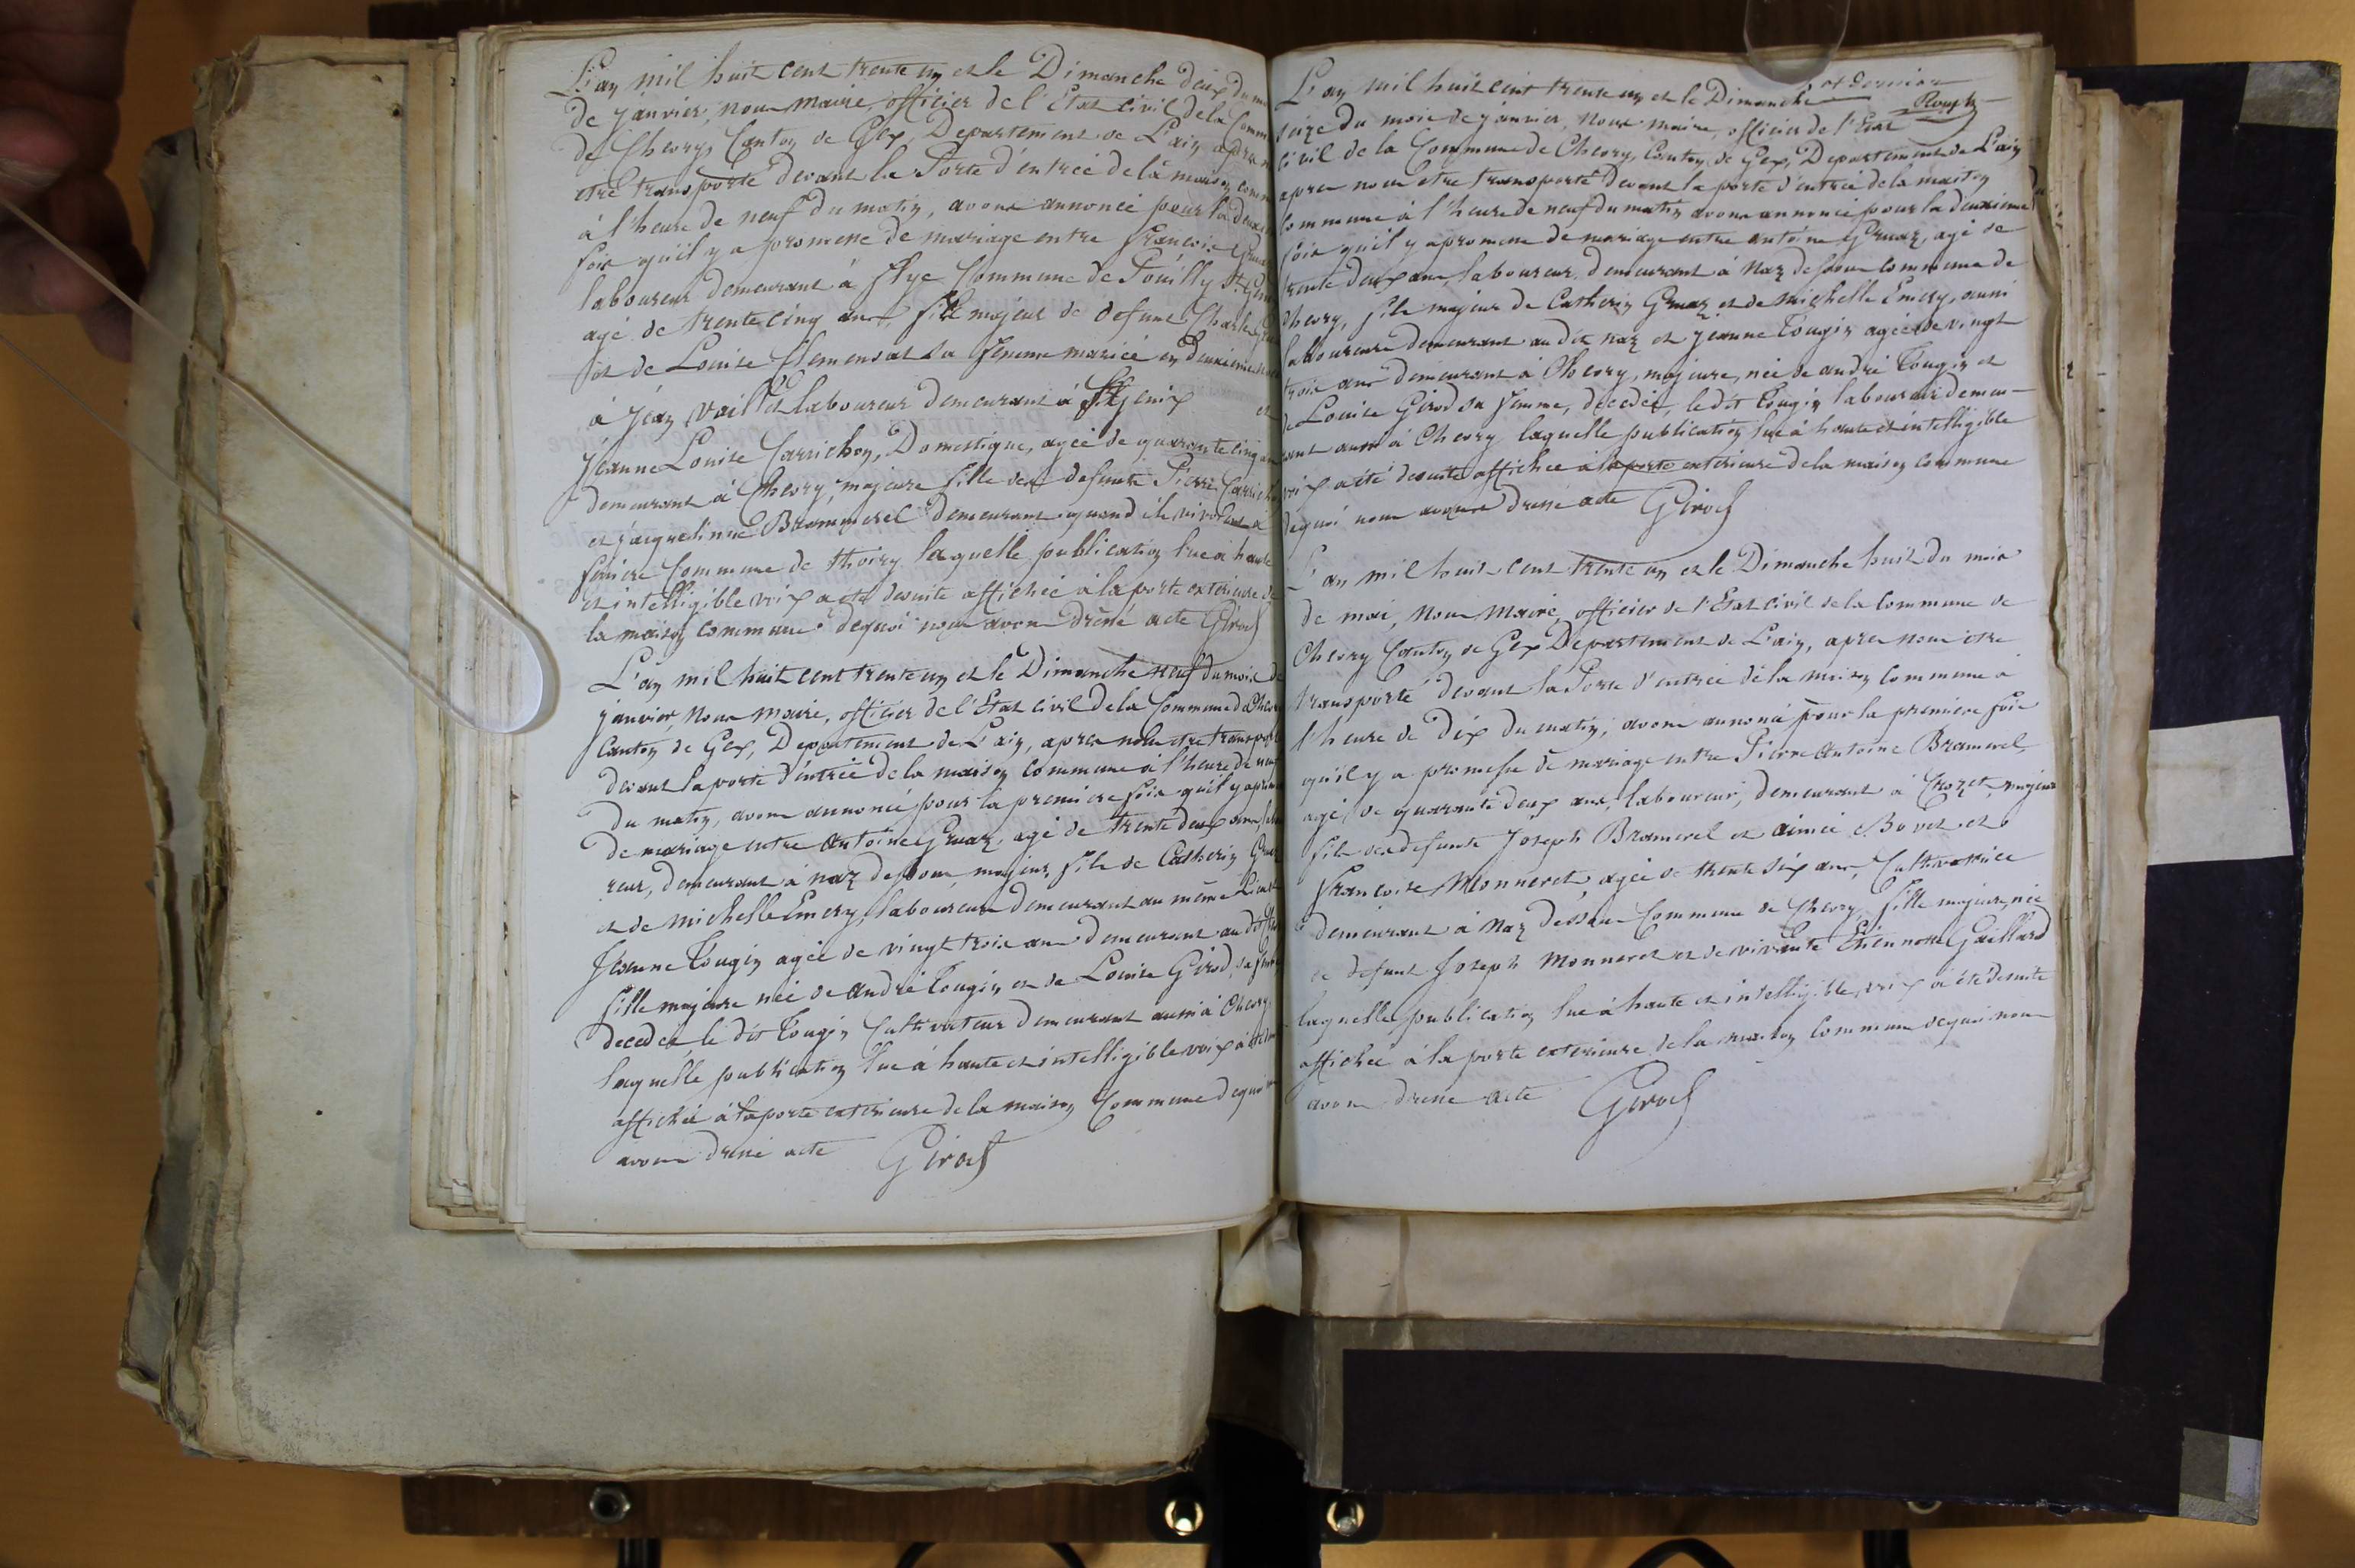 L'an mil huit cent trente un et le Dimanche deux du
de janvier, nous maire, officier de l'Etat civil de la Comm
de Chevry, Canton de Gex, Departement de L'ain, après n
etre transporté devant la Porte d'entrée de la maison comm
à l'heure de neuf du matin, avons annoncé pour la deuxie
fois qu'il y a promesse de mariage entre françois Gruaz
laboureur demeurant à flye Commune de Pouilly St. Geni
agé de trente cinq ans, fils majeur de defunt Charles
et de Louise Clemensat sa femme mariée en deuxieme
à jean et laboureur demeurant à St. jenix et
jeanne Louise Carrichon, Domestique, agée de quarante cinq an
demeurant à Chevry, majeure fille des defunts Pierre Carrich
et jacquelinne Brammerel demeurant quand ils vivoient à
feniere Commune de thoiry laquelle publication lue à haute
et intelligible voix a eté desuite affichée à la porte exterieure de
la maison commune dequoi nous avons dressé acte Girod
L'an mil huit cent trente un et le Dimanche neuf du mois de
janvier, nous maire, officier de l'Etat civil de la Commune de Chevr
Canton de Gex, Departement de L'ain, après nous etre transporté
devant la porte d'entrée de la maison commune à l'heure de neuf
du matin, avons annoncé pour la premiere fois qu'il y a prom
de mariage entre Antoine Gruaz, agé de trente deux ans, labou
reur, demeurant à naz dessous, majeur, fils de Catherin Gruaz
et de michelle Emery, laboureurs demeurant au même Lieu et
jeanne Tougin agée de vingt trois ans demeurant au dit
fille majeure née de andré Tougin et de Louise Girod, sa femme
decedée, le dit Tougin Cultivateur demeurant aussi à Chevry
laquelle publication lue à haute et intelligible voix a été de
affichée à la porte exterieure de la maison Commune dequoi
avons dressé acte Girod
et dernier
L'an mil huit cent trente un et le Dimanche
seize du mois de janvier, nous maire, officier de l'Etat
civil de la Commune de Chevry, Canton de Gex, Departement de L'ain
apres nous etre transporté devant la porte d'entrée de la maison
commune à l'heure de neuf du matin avons annoncé pour la deuxieme
fois qu'il y a promesse de mariage entre antoine Gruaz, agé de
trente deux ans, laboureur, demeurant à Naz dessous commune de
Chevry, fils majeur de Catherin Gruaz et de michelle Emery, aussi
laboureurs demeurant au dit naz et jeanne Tougin agée de vingt
trois ans demeurant à Chevry, majeure, née de andré Tougin et
de Louise Girod sa femme, decedée, le dit Tougin laboureur demeu-
rant aussi à Chevry laquelle publication lue à haute et intelligible
voix a été desuite affichée à la porte exterieure de la maison commune
dequoi nous avons dressé acte Girod
L'an mil huit cent trente un et le Dimanche huit du mois
de mai, nous maire, officier de l'Etat civil de la Commune de
Chevry Canton de Gex Departement de L'ain, apres nous etre
transporté devant la Porte d'entrée de la maison commune à
l'heure de dix du matin, avons annoncé pour la premiere fois
qu'il y a promesse de mariage entre Pierre Antoine Bramerel,
agé de quarante deux ans, laboureur, demeurant à Crozet, majeur
fils des defunts Joseph Bramerel et aimée Bovet et
Françoise Monneret, agée de trente six ans, Cultivatrice
demeurant à Naz dessous Commune de Chevry, fille majeure, née
de defunt Joseph Monneret et de vivante Etiennette Gaillard
laquelle publication lue à haute et intelligible voix a été desuite
affichée à la porte exterieure de la maison commune dequoi nous
avons dressé acte Girod